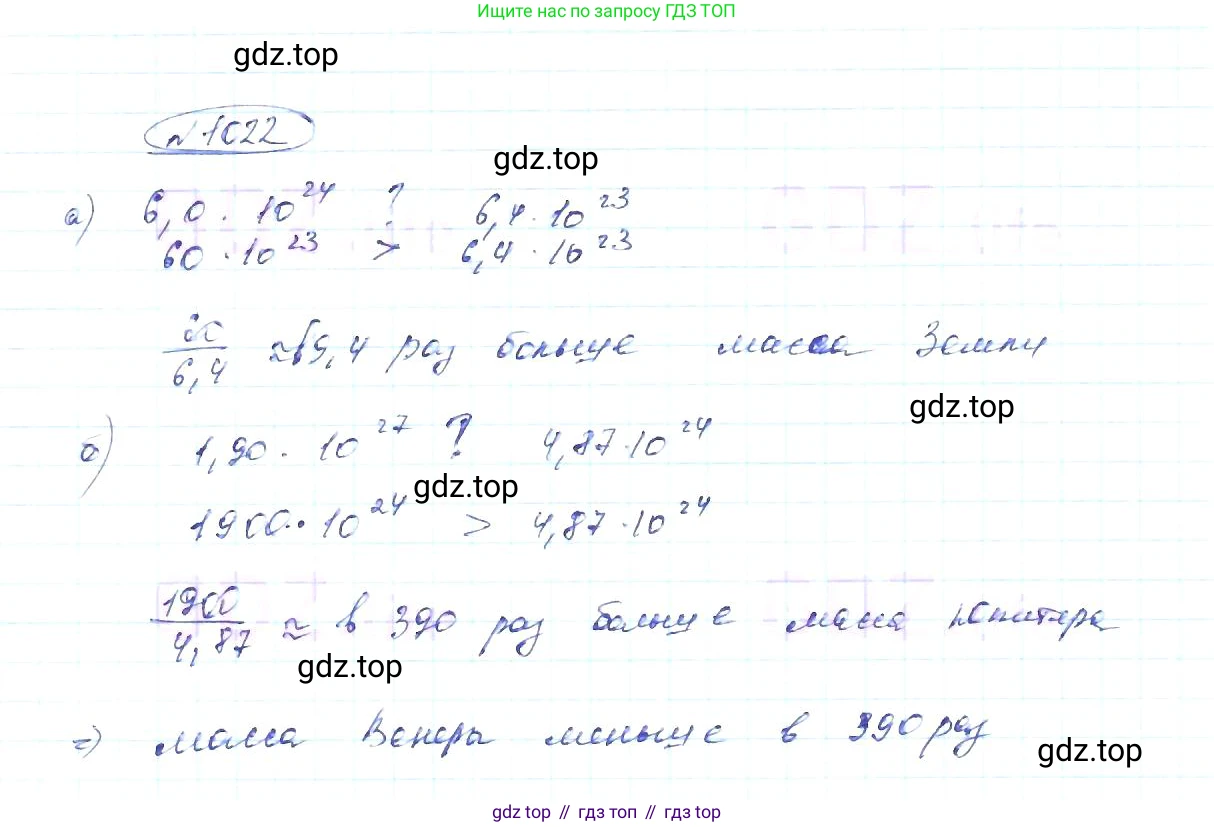 Ищите нас по запросу ГДЗ ТОП
gdz.top
№1022
gdz.top
а) 6,0 · 10^24 ? 6,4 · 10^23
60 · 10^23 > 6,4 · 10^23
60/6,4 ≈ 9,4 раз больше масса Земли
gdz.top
б) 1,90 · 10^27 ? 4,87 · 10^24
gdz.top
1900 · 10^24 > 4,87 · 10^24
1900/4,87 ≈ в 390 раз больше масса Юпитера
gdz.top
=) масса Венеры меньше в 390 раз
gdz.top
gdz top // гдз топ // гдз top